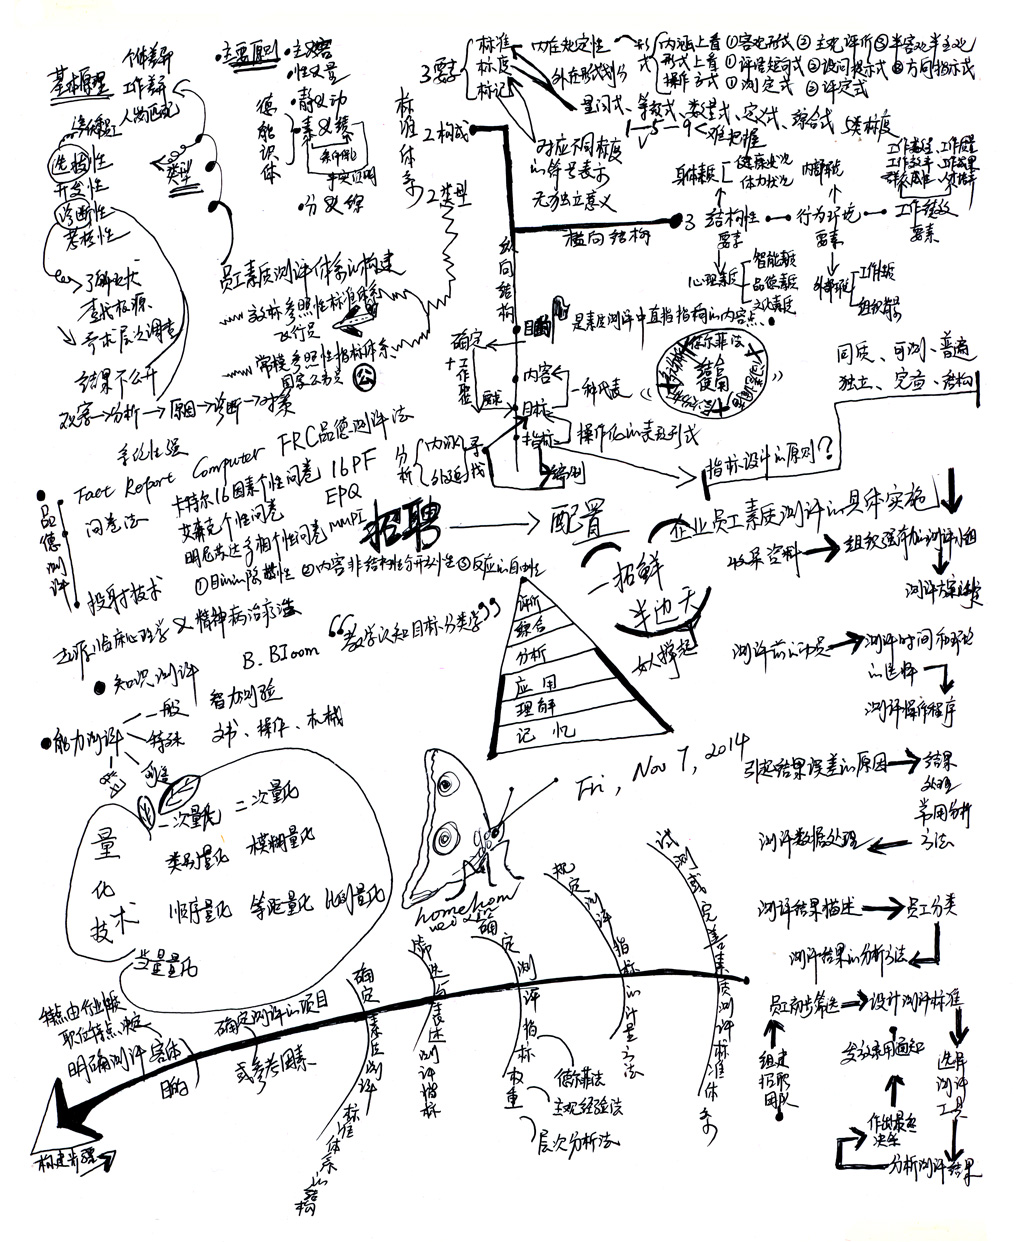 基本原理
个体差异
工作差异
人岗匹配
选拔性
开发性
诊断性
考核性
类型
了解现状
查找根源
结果不公开
观察→分析→原因→诊断→对策
系统性强
主要原则
德能识体
静 动
分 综
员工素质测评体系的构建
效标参照性标准体系
飞行员
常模参照性指标体系
国家公务员
公
标准体系
2构成
2类型
3要素
标准
标度
标记
内在规定性
外在形式划分
形式
内涵上看 ①客观形式 ②主观评价 ③半客观半主观
形式上看 ①评语短句式 ②设问提示式 ③方向指示式
操作方式 ①测定式 ②评定式
量词式、等级式、数量式、定义式、综合式
1—5—9<难把握
对应不同标度
的符号表示
无独立意义
横向结构
纵向结构
3
结构性
要素
行为环境
要素
工作绩效
要素
身体素质
健康状况
体力状况
心理素质
智能素质
品德素质
文化素质
内部环境
外部环境
是素质测评中直指指向的内容点
目的
内容
目标
指标
确定
工作
一种代表
操作化的表现形式
分析
内涵
外延
寻找
德尔菲法
结合
使用
同质、可测、普遍
独立、完备、结构
指标设计的原则?
品德测评
Fact Report Computer FRC品德测评法
问卷法
卡特尔16因素个性问卷 16PF
艾森克个性问卷 EPQ
明尼苏达多相个性问卷 MMPI
投射技术
①目的的隐蔽性 ②内容非结构性与开放性 ③反应的自由性
起源:临床心理学&精神病治疗法
招聘
配置
一招鲜
半边天
女人撑起
知识测评
B.Bloom
“教学认知目标分类学”
评价
综合
分析
应用
理解
记忆
能力测评
一般
特殊
智力测验
文书、操作、机械
Fri, Nov 7, 2014
量化技术
一次量化 二次量化
类别量化 模糊量化
顺序量化 等距量化 比例量化
当量量化
企业员工素质测评的具体实施
收集资料→组织强有力的测评小组
测评方案
测评前的动员→测评时间和环境
的选择
测评操作程序
引起结果误差的原因→结果
处理
常用分析
方法
测评数据处理
测评结果描述→员工分类
测评结果的分析方法
员工初步筛选→设计测评标准
组建
招聘
团队
发放录用通知
选择
测评
工具
作出最终
决策
分析测评结果
构建步骤
明确测评客体
目的
特点由行业性质
职位特点决定
确定测评的项目
或参考因素
确定素质测评标准体系的结构
筛选与表述测评指标
确定测评指标权重
德尔菲法
主观经验法
层次分析法
规定测评指标的计量方法
试测或完善素质测评标准体系